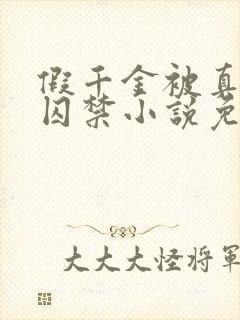 假千金被真
囚禁小說免
大大大怪将軍